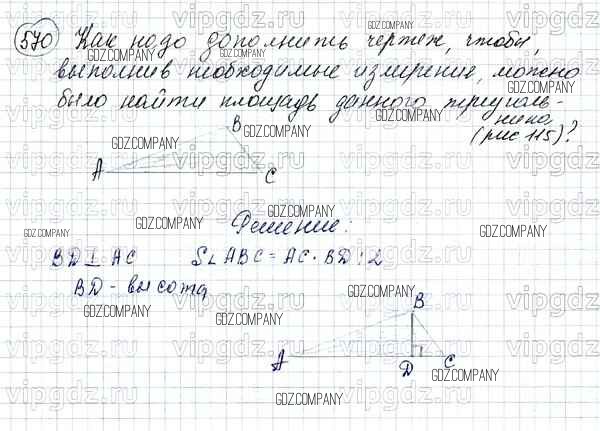 570 Как надо дополнить чертеж, чтобы,
выполнив необходимые измерение, можно
было найти площадь данного треуголь-
ника
(рис 115)?
B
A
C
Решение:
BD ⊥ AC S∠ABC = AC · BD : 2
BD - высота
B
A
D
C
GDZ.COMPANY
vipgdz.ru